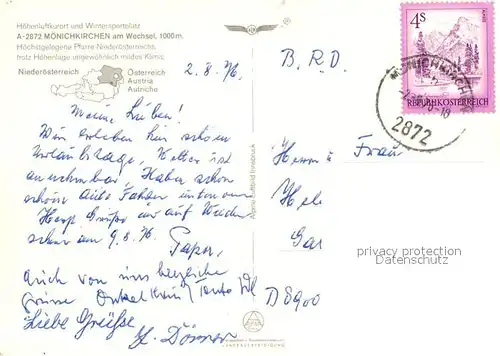 Höhenluftkurort und Wintersportplatz
A-2872 MÖNICHKIRCHEN am Wechsel, 1000 m,
Höchstgelegene Pfarre Niederösterreichs,
trotz Höhenlage ungewöhnlich mildes Klima.
Niederösterreich
Österreich
Austria
Autriche
2.8.76.
Meine Lieben!
Wir erleben hier schöne
Urlaubstage, Wetter ist
annehmbar, Haben schon
schöne Auto Fahrten unternom
Herzl Grüße wir auf Wieder
sehen am 9.8.76. Papa,
Auch von uns herzliche
Grüsse Onkel Tante
Liebe Grüße
B.R.D.
4s
REPUBLIK ÖSTERREICH
MÖNICHKIRCHEN
2872
Herrn u Frau
D 8900
privacy protection
Datenschutz